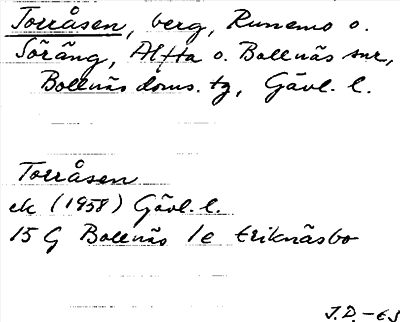 Torråsen, berg, Runemo o.
Söräng, Alfta o. Bollnäs snr,
Bollnäs doms. tg, Gävl. l.
Torråsen
ek (1958) Gävl. l.
15 G Bollnäs 1e Eriknäsbo
J.D. -63